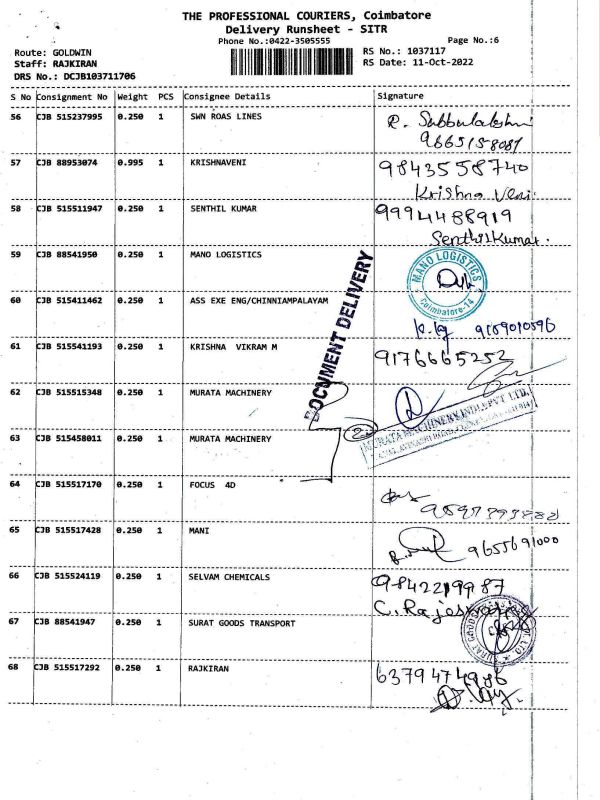 THE PROFESSIONAL COURIERS, Coimbatore
Delivery Runsheet - SITR
Phone No.:0422-3505555
Page No.:6
Route: GOLDWIN
RS No.: 1037117
Staff: RAJKIRAN
RS Date: 11-Oct-2022
DRS No.: DCJB103711706
S No Consignment No Weight PCS Consignee Details Signature
56 CJB 515237995 0.250 1 SWN ROAS LINES R. Subbulakshmi
9665158087
57 CJB 88953074 0.995 1 KRISHNAVENI 9843558740
Krishna Veni.
58 CJB 515511947 0.250 1 SENTHIL KUMAR 9994488919
SenthilKumar.
59 CJB 88541950 0.250 1 MANO LOGISTICS
MANO LOGISTICS
Coimbatore-14
DOCUMENT DELIVERY
60 CJB 515411462 0.250 1 ASS EXE ENG/CHINNIAMPALAYAM
9159010596
61 CJB 515541193 0.250 1 KRISHNA VIKRAM M 9176665252
62 CJB 515515348 0.250 1 MURATA MACHINERY
MURATA MACHINERY INDIA PVT LTD.
63 CJB 515458011 0.250 1 MURATA MACHINERY
64 CJB 515517170 0.250 1 FOCUS 4D
65 CJB 515517428 0.250 1 MANI 9655691000
66 CJB 515524119 0.250 1 SELVAM CHEMICALS 9842219987
C. Rajeswari
67 CJB 88541947 0.250 1 SURAT GOODS TRANSPORT
SURAT GOODS
68 CJB 515517292 0.250 1 RAJKIRAN 6379474986